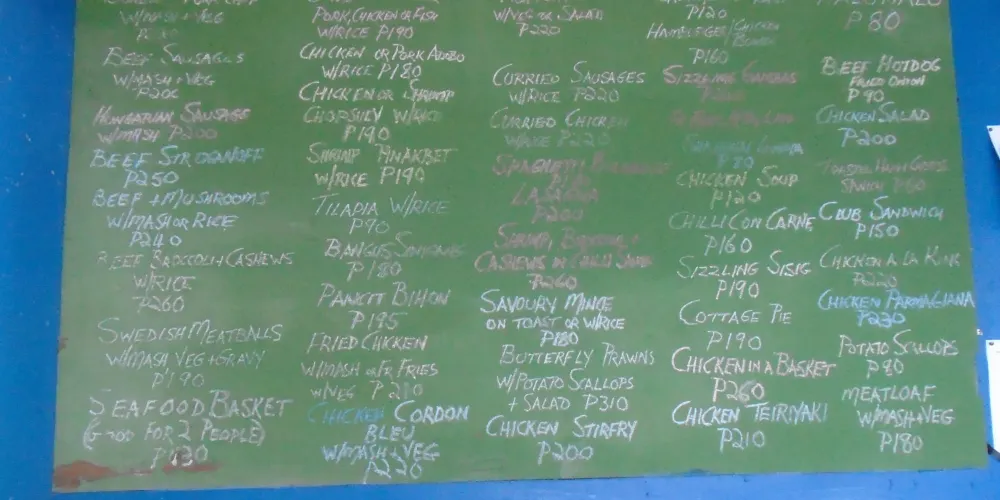 W/MASH + VEG
BEEF SAUSAGES
W/MASH + VEG
P200
HUNGARIAN SAUSAGE
W/MASH P200
BEEF STROGANOFF
P250
BEEF + MUSHROOMS
W/MASH OR RICE
P240
BEEF BROCCOLI + CASHEWS
W/RICE
P260
SWEDISH MEATBALLS
W/MASH VEG + GRAVY
P190
SEAFOOD BASKET
(GOOD FOR 2 PEOPLE)
PORK, CHICKEN OR FISH
W/RICE P190
CHICKEN OR PORK ADOBO
W/RICE P180
CHICKEN OR SHRIMP
CHOPSUEY W/RICE
P190
SHRIMP PINAKBET
W/RICE P190
TILAPIA W/RICE
P90
BANGUS
P180
PANCIT BIHON
P195
FRIED CHICKEN
W/MASH OR FR FRIES
W/VEG P210
CHICKEN CORDON
BLEU
W/MASH + VEG
P220
W/VEG OR SALAD
P220
CURRIED SAUSAGES
W/RICE P220
CURRIED CHICKEN
P220
SPAGHETTI
LASAGNA
P200
SHRIMP,
CASHEWS IN CHILLI
P260
SAVOURY MINCE
ON TOAST OR W/RICE
P180
BUTTERFLY PRAWNS
W/POTATO SCALLOPS
+ SALAD P310
CHICKEN STIRFRY
P200
P120
CHICKEN
P160
SIZZLING GAMBAS
P80
CHICKEN SOUP
P120
CHILLI CON CARNE
P160
SIZZLING SISIG
P190
COTTAGE PIE
P190
CHICKEN IN A BASKET
P260
CHICKEN TEIRIYAKI
P210
P80
BEEF HOTDOG
FRIED ONION
P90
CHICKEN SALAD
P200
CLUB SANDWICH
P150
CHICKEN A LA KING
P220
CHICKEN PARMAGIANA
P230
POTATO SCALLOPS
P80
MEATLOAF
W/MASH + VEG
P180